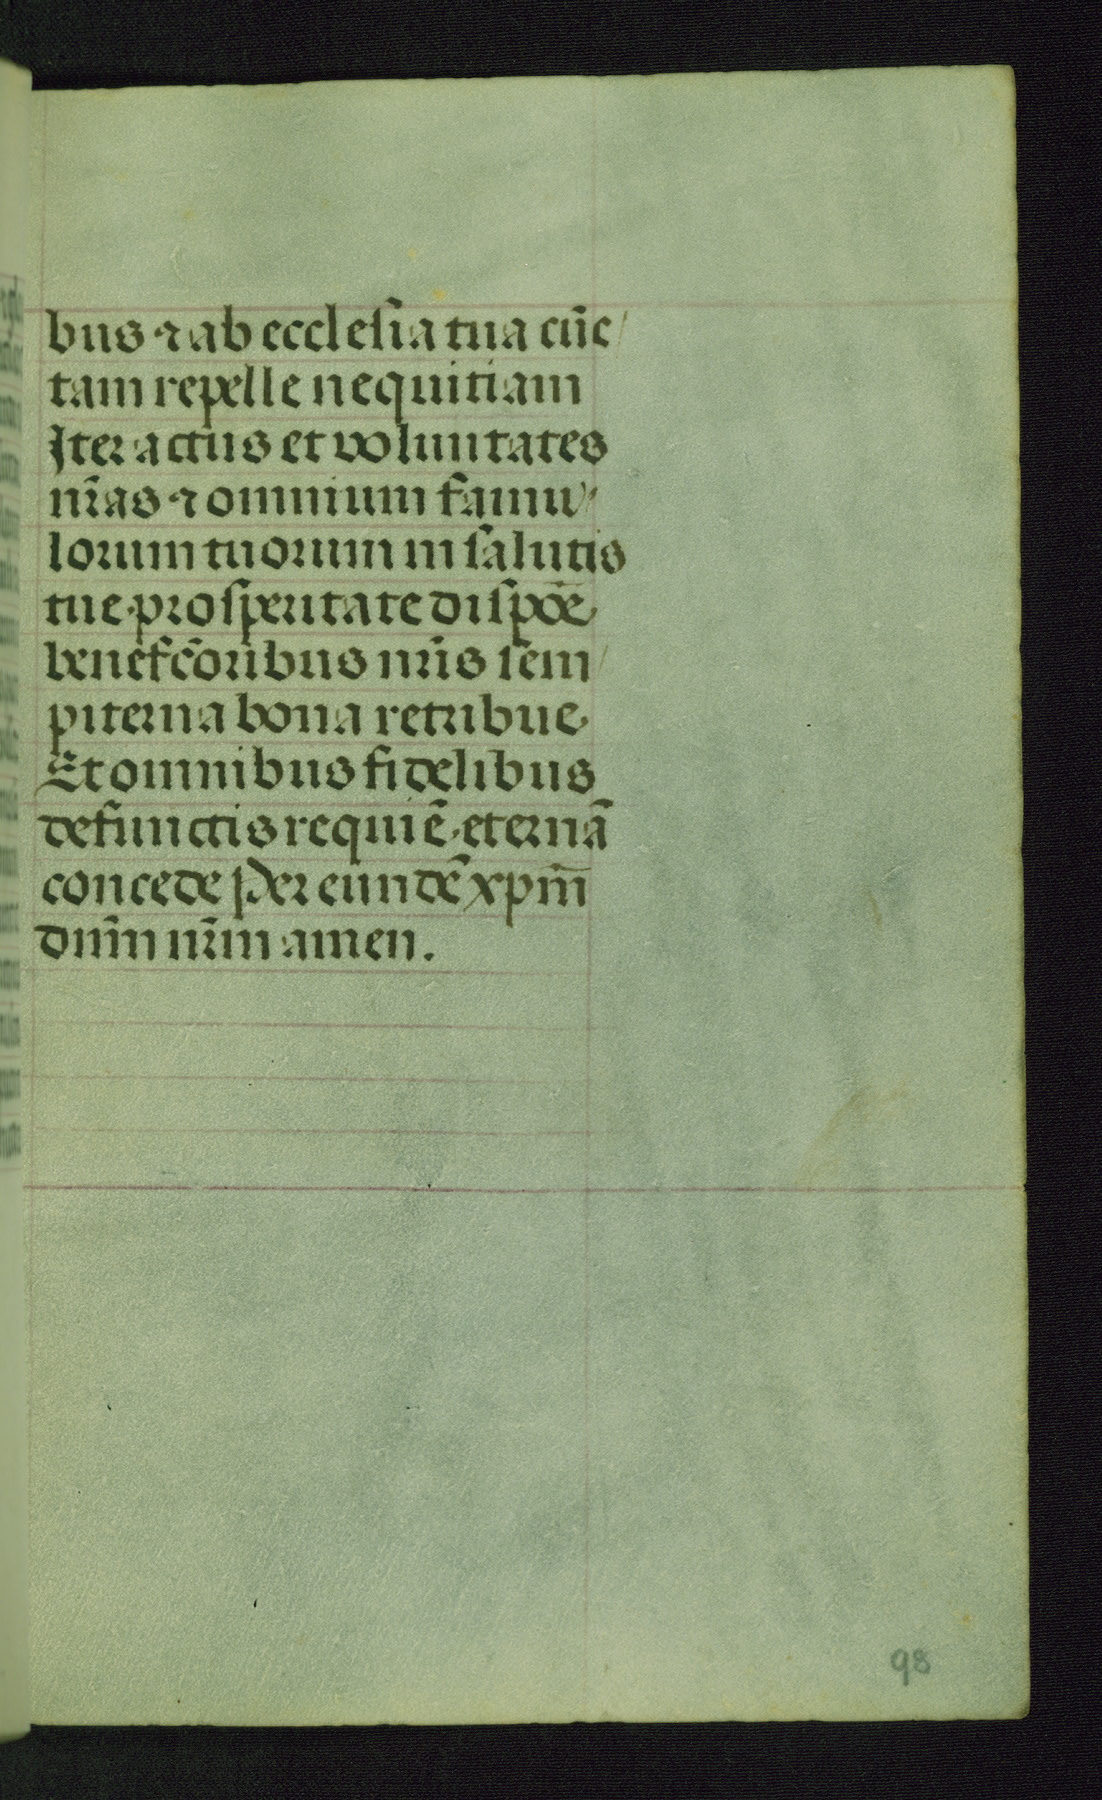 bus ⁊ ab ecclesia tua cūc/
tam repelle nequitiam
Iter actus et voluntates
nr̄as ⁊ omnium famu/
lorum tuorum in salutis
tue prosperitate dispōe
benefc̄oribus nr̄is sem/
piterna bona retribue
Et omnibus fidelibus
defunctis requiē eternā
concede Per eundē xpm̄
dnm̄ nr̄m amen.
98